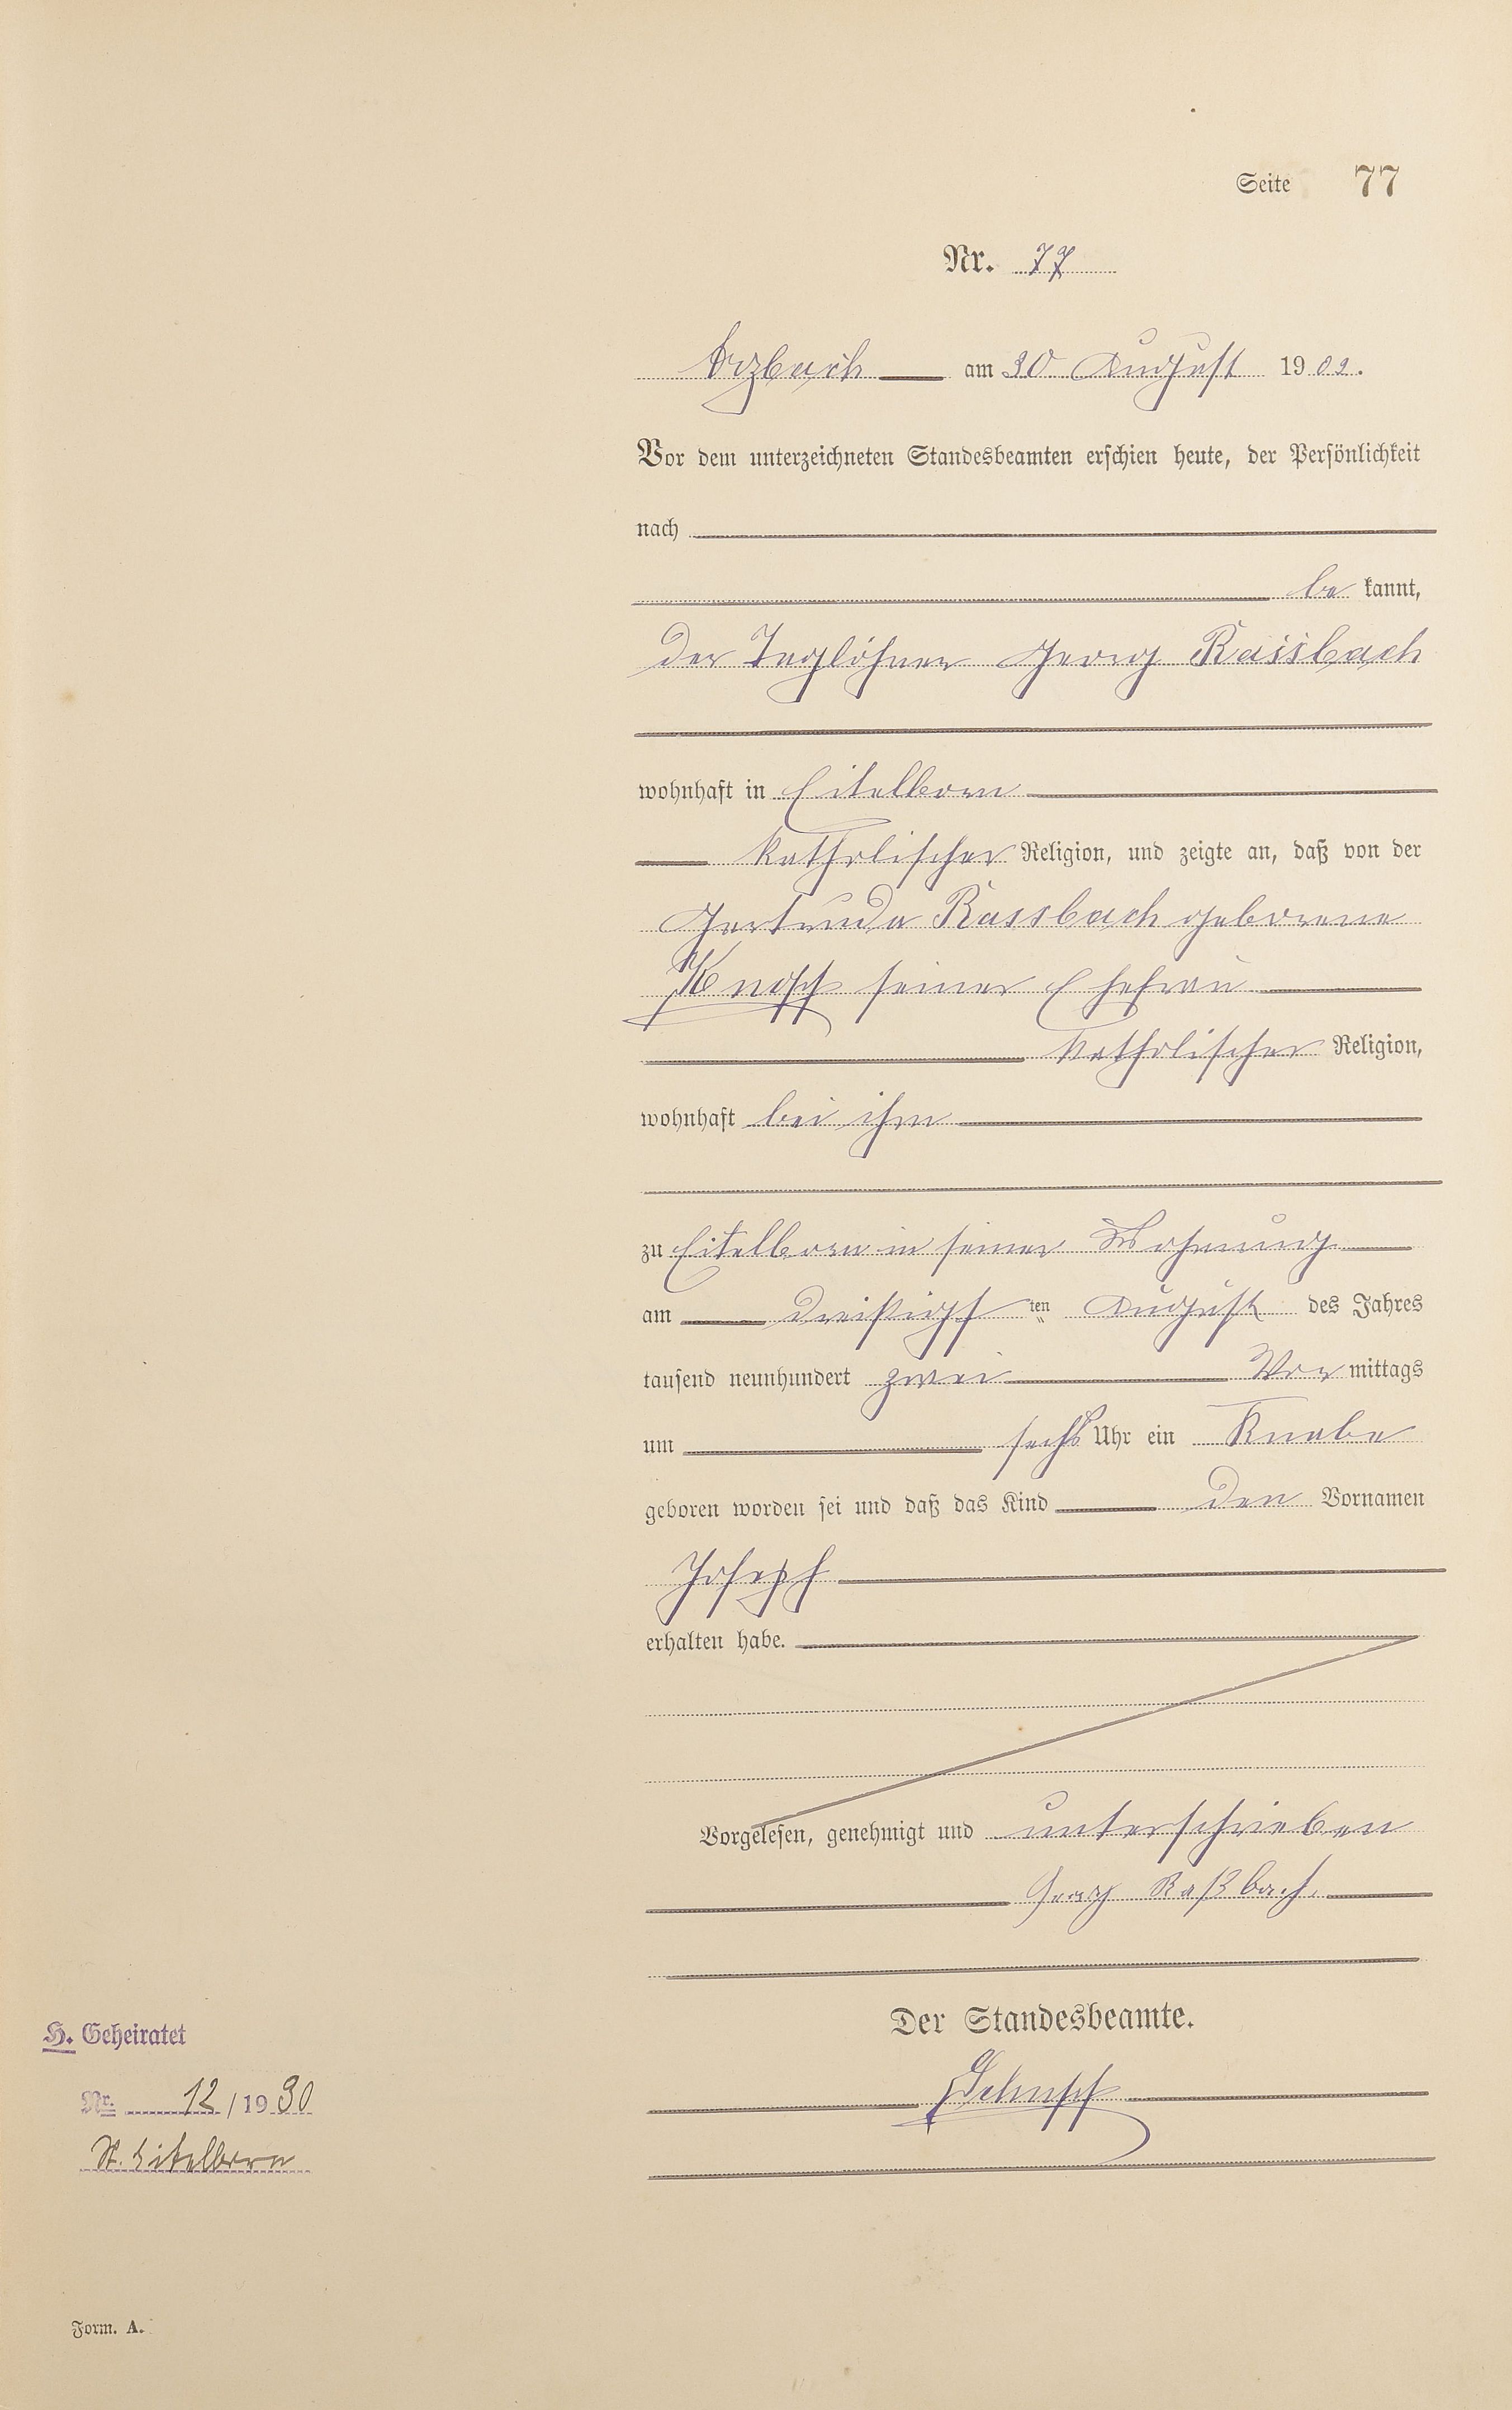 Seite 77
Nr. 77
Arzbach am 30 August 1902.
Vor dem unterzeichneten Standesbeamten erschien heute, der Persönlichkeit
nach
be kannt,
der Taglöhner Georg Rassbach
wohnhaft in Eitelborn
katholischer Religion, und zeigte an, daß von der
Gertruda Rassbach geborene
Knopf seiner Ehefrau
katholischer Religion,
wohnhaft bei ihm
zu Eitelborn in seiner Wohnung
am dreißigsten August des Jahres
tausend neunhundert zwei Vor mittags
um sechs Uhr ein Knabe
geboren worden sei und daß das Kind den Vornamen
Joseph
erhalten habe.
Vorgelesen, genehmigt und unterschrieben
Georg Raßbach.
Der Standesbeamte.
H. Geheiratet
Nr. 12/1930
St. Eitelborn
Form. A.